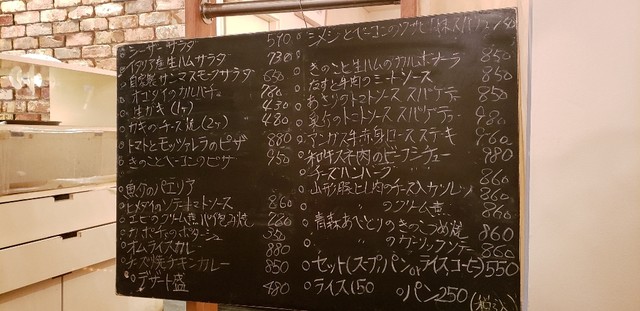 シーザーサラダ 590
イタリア産生ハムサラダ 730
自家製サンマスモークサラダ 650
780
生ガキ(1ヶ) 430
カキのチーズ焼(2ヶ) 480
トマトとモッツァレラのピザ 880
きのことベーコンのピザ 950
魚介のパエリア
ヒメダイのソテートマトソース 860
エビのクリーム煮パイ包み焼 760
カボチャのポタージュ 350
オムライスカレー 880
チーズ焼チキンカレー 850
デザート盛 480
シメジとベーコンの
きのこと生ハムのカルボナーラ 850
なすと牛肉のミートソース 850
あさりのトマトソーススパゲティ 850
のトマトソーススパゲティ
アンガス牛赤身ロースステーキ 960
和牛スネ肉のビーフシチュー 980
チーズハンバーグ 860
山形豚ヒレ肉のチーズ入カツレツ 860
〃 のクリーム煮 860
青森あべどりのきのこクリーム煮 860
〃 のガーリックソテー 860
セット(スープ、パンorライス、コーヒー) 550
ライス150 パン250 (税込)